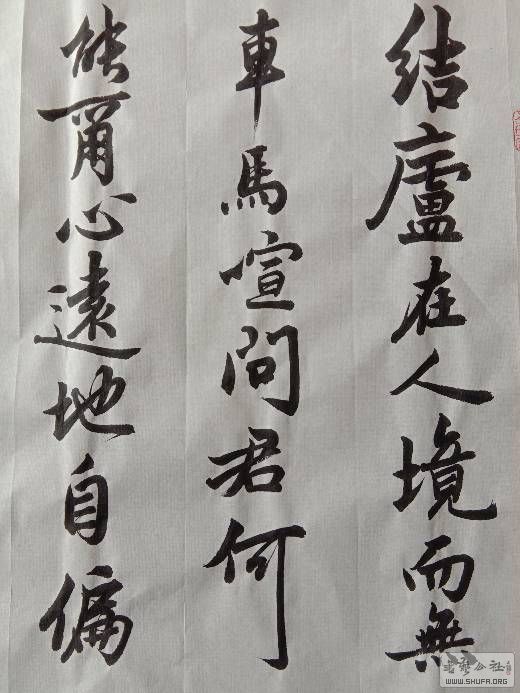 结廬在人境而無
車馬喧問君何
能爾心遠地自偏
WWW.SHUFA.ORG